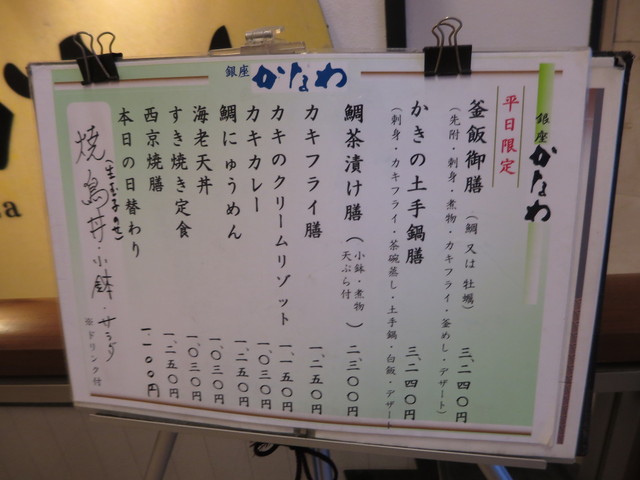 銀座 かなわ
銀座 かなわ
平日限定
釜飯御膳（鯛 又は 牡蠣） 三、二四〇円
（先附・刺身・煮物・カキフライ・釜めし・デザート）
かきの土手鍋膳 三、二四〇円
（刺身・カキフライ・茶碗蒸し・土手鍋・白飯・デザート
鯛茶漬け膳（小鉢・煮物 天ぷら付） 二、三〇〇円
カキフライ膳 一、二五〇円
カキのクリームリゾット 一、一五〇円
カキカレー 一、〇三〇円
鯛にゅうめん 一、二五〇円
海老天丼 一、〇三〇円
すき焼き定食 一、〇三〇円
西京焼膳 一、二五〇円
本日の日替わり 一、一〇〇円
焼鳥丼・小鉢・サラダ
（生玉子のせ）
※ドリンク付